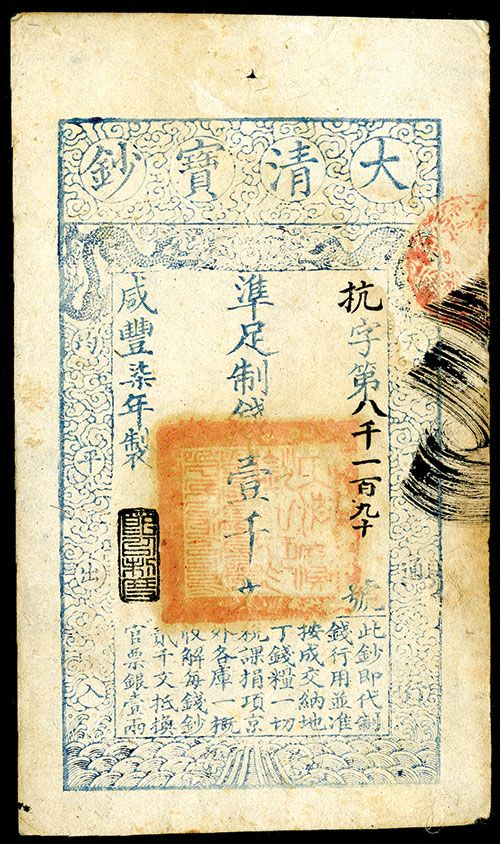 大清寶鈔
天通行
抗字第八千一百九十號
準足制錢壹千文
咸豐柒年製
均平出入
此鈔即代制
錢行用並准
按成交納地
丁錢糧一切
稅課捐項京
外各庫一概
收解每錢鈔
貳千文抵換
官票銀壹兩